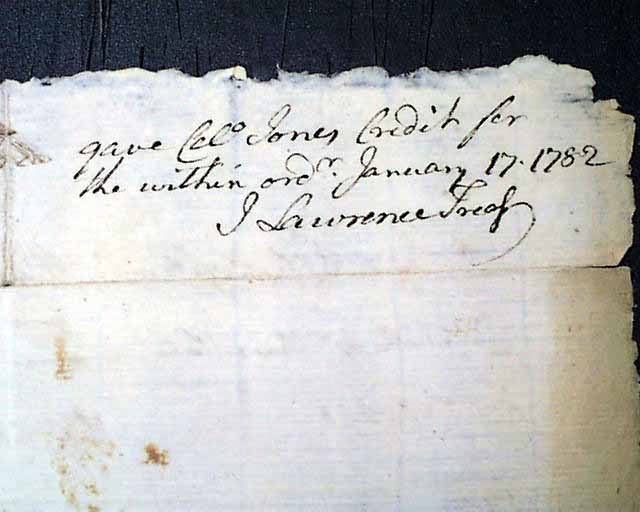 gave Colo Jones Credit for
the within ordr. January 17. 1782
J Lawrence Treasr